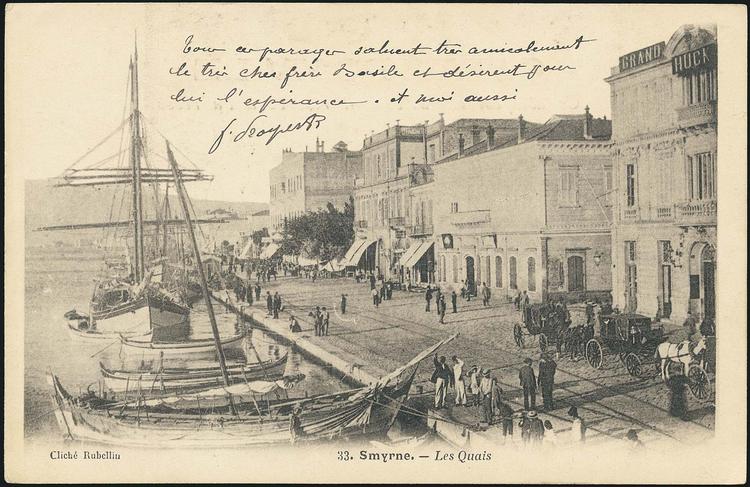 Tous ces parages saluent très amicalement
le très cher frère Basile et désirent pour
lui l'espérance. et moi aussi
GRAND
HUCK
Cliché Rubellin
33. Smyrne. — Les Quais